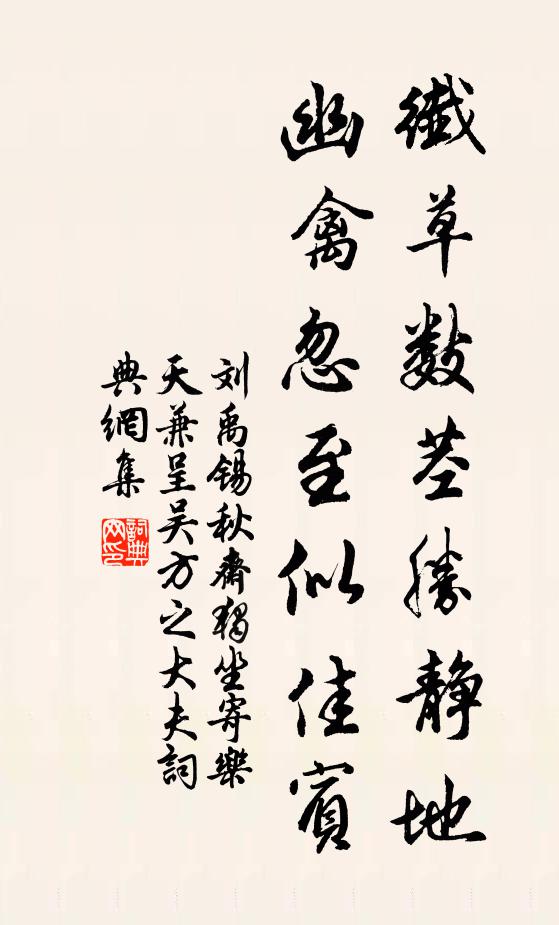 纖草數莖勝靜地
幽禽忽至似佳賓
刘禹锡秋齋獨坐寄樂
天兼呈吴方之大夫詞
典網集
詞典
网印